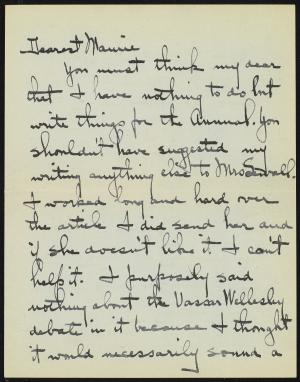 Dearest Mamie
You must think my dear
that I have nothing to do but
write things for the Annual. You
shouldn't have suggested my
writing anything else to Mrs Sewall.
I worked long and hard over
the article I did send her and
if she doesn't like it I can't
help it. I purposely said
nothing about the Vassar Wellesley
debate in it because I thought
it would necessarily sound a